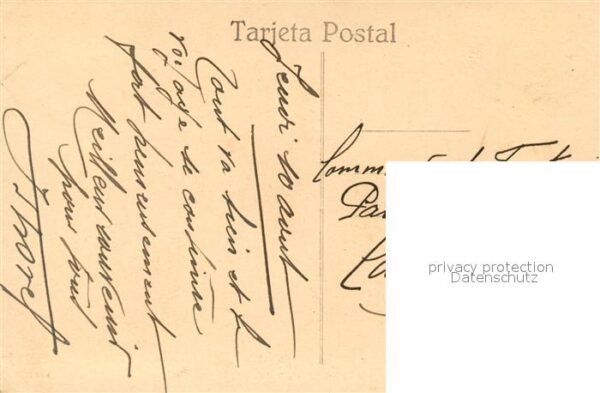 Tarjeta Postal
Jeudi 10 aout
Tout va bien et le
voyage se continue
fort heureusement
Meilleurs souvenirs
pour tous
Comm
Pa
privacy protection
Datenschutz